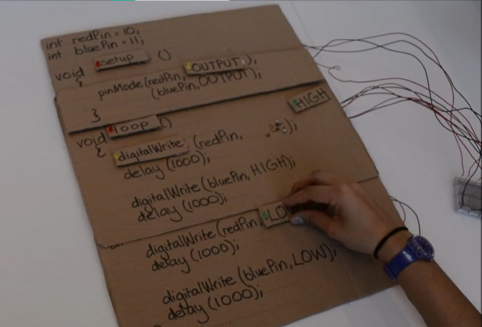 int redPin = 10;
int bluePin = 11;
void setup ()
{
pinMode(redPin, OUTPUT);
(bluePin, OUTPUT);
}
HIGH
void loop ()
{ digitalWrite (redPin, );
delay (1000);
digitalWrite (bluePin, HIGH);
delay (1000);
digitalWrite (redPin,
delay (1000);
digitalWrite (bluePin, LOW);
delay (1000);